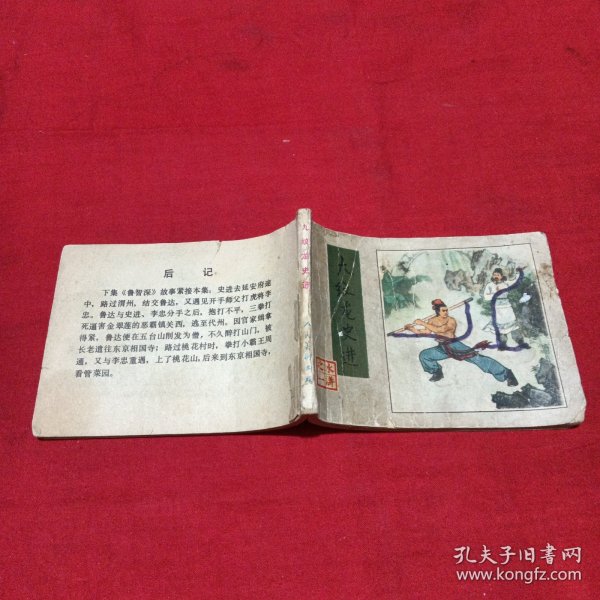 后记
下集《鲁智深》故事紧接本集：史进去延安府途
中，路过渭州，结交鲁达，又遇见开手师父打虎将李
忠。鲁达与史进、李忠分手之后，抱打不平，三拳打
死逼害金翠莲的恶霸镇关西，逃至代州。因官家缉拿
得紧，鲁达便在五台山削发为僧，不久醉打山门，被
长老遣往东京相国寺；路过桃花村时，拳打小霸王周
通，又与李忠重遇，上了桃花山，后来到东京相国寺，
看管菜园。
九纹龙史进
九纹龙史进
水浒
之一
孔夫子旧书网
www.kongfz.com